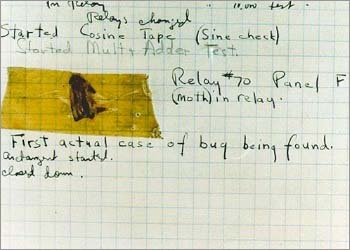 in relay " 11,000 test.
Relays changed
Started Cosine Tape (Sine check)
Started Mult + Adder Test.
Relay #70 Panel F
(moth) in relay.
First actual case of bug being found.
antangent started.
closed down.